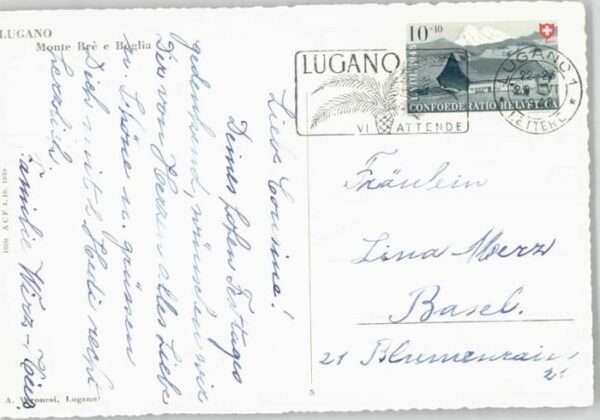 LUGANO
Monte Brè e Boglia
10+10
LUGANO
VI ATTENDE
CONFOEDERATIO HELVETICA
LUGANO 1
LETTERE
Liebe Cousine!
Deines hohen Festtages
gedenkend, wünschen wir
Dir von Herzen alles Liebe
u. Schöne u. grüssen
Dich mit Heidi recht
herzlich.
Familie Wirz-
Fräulein
Lina Merz
Basel.
21 Blumenrain
21
A. Veronesi, Lugano
5